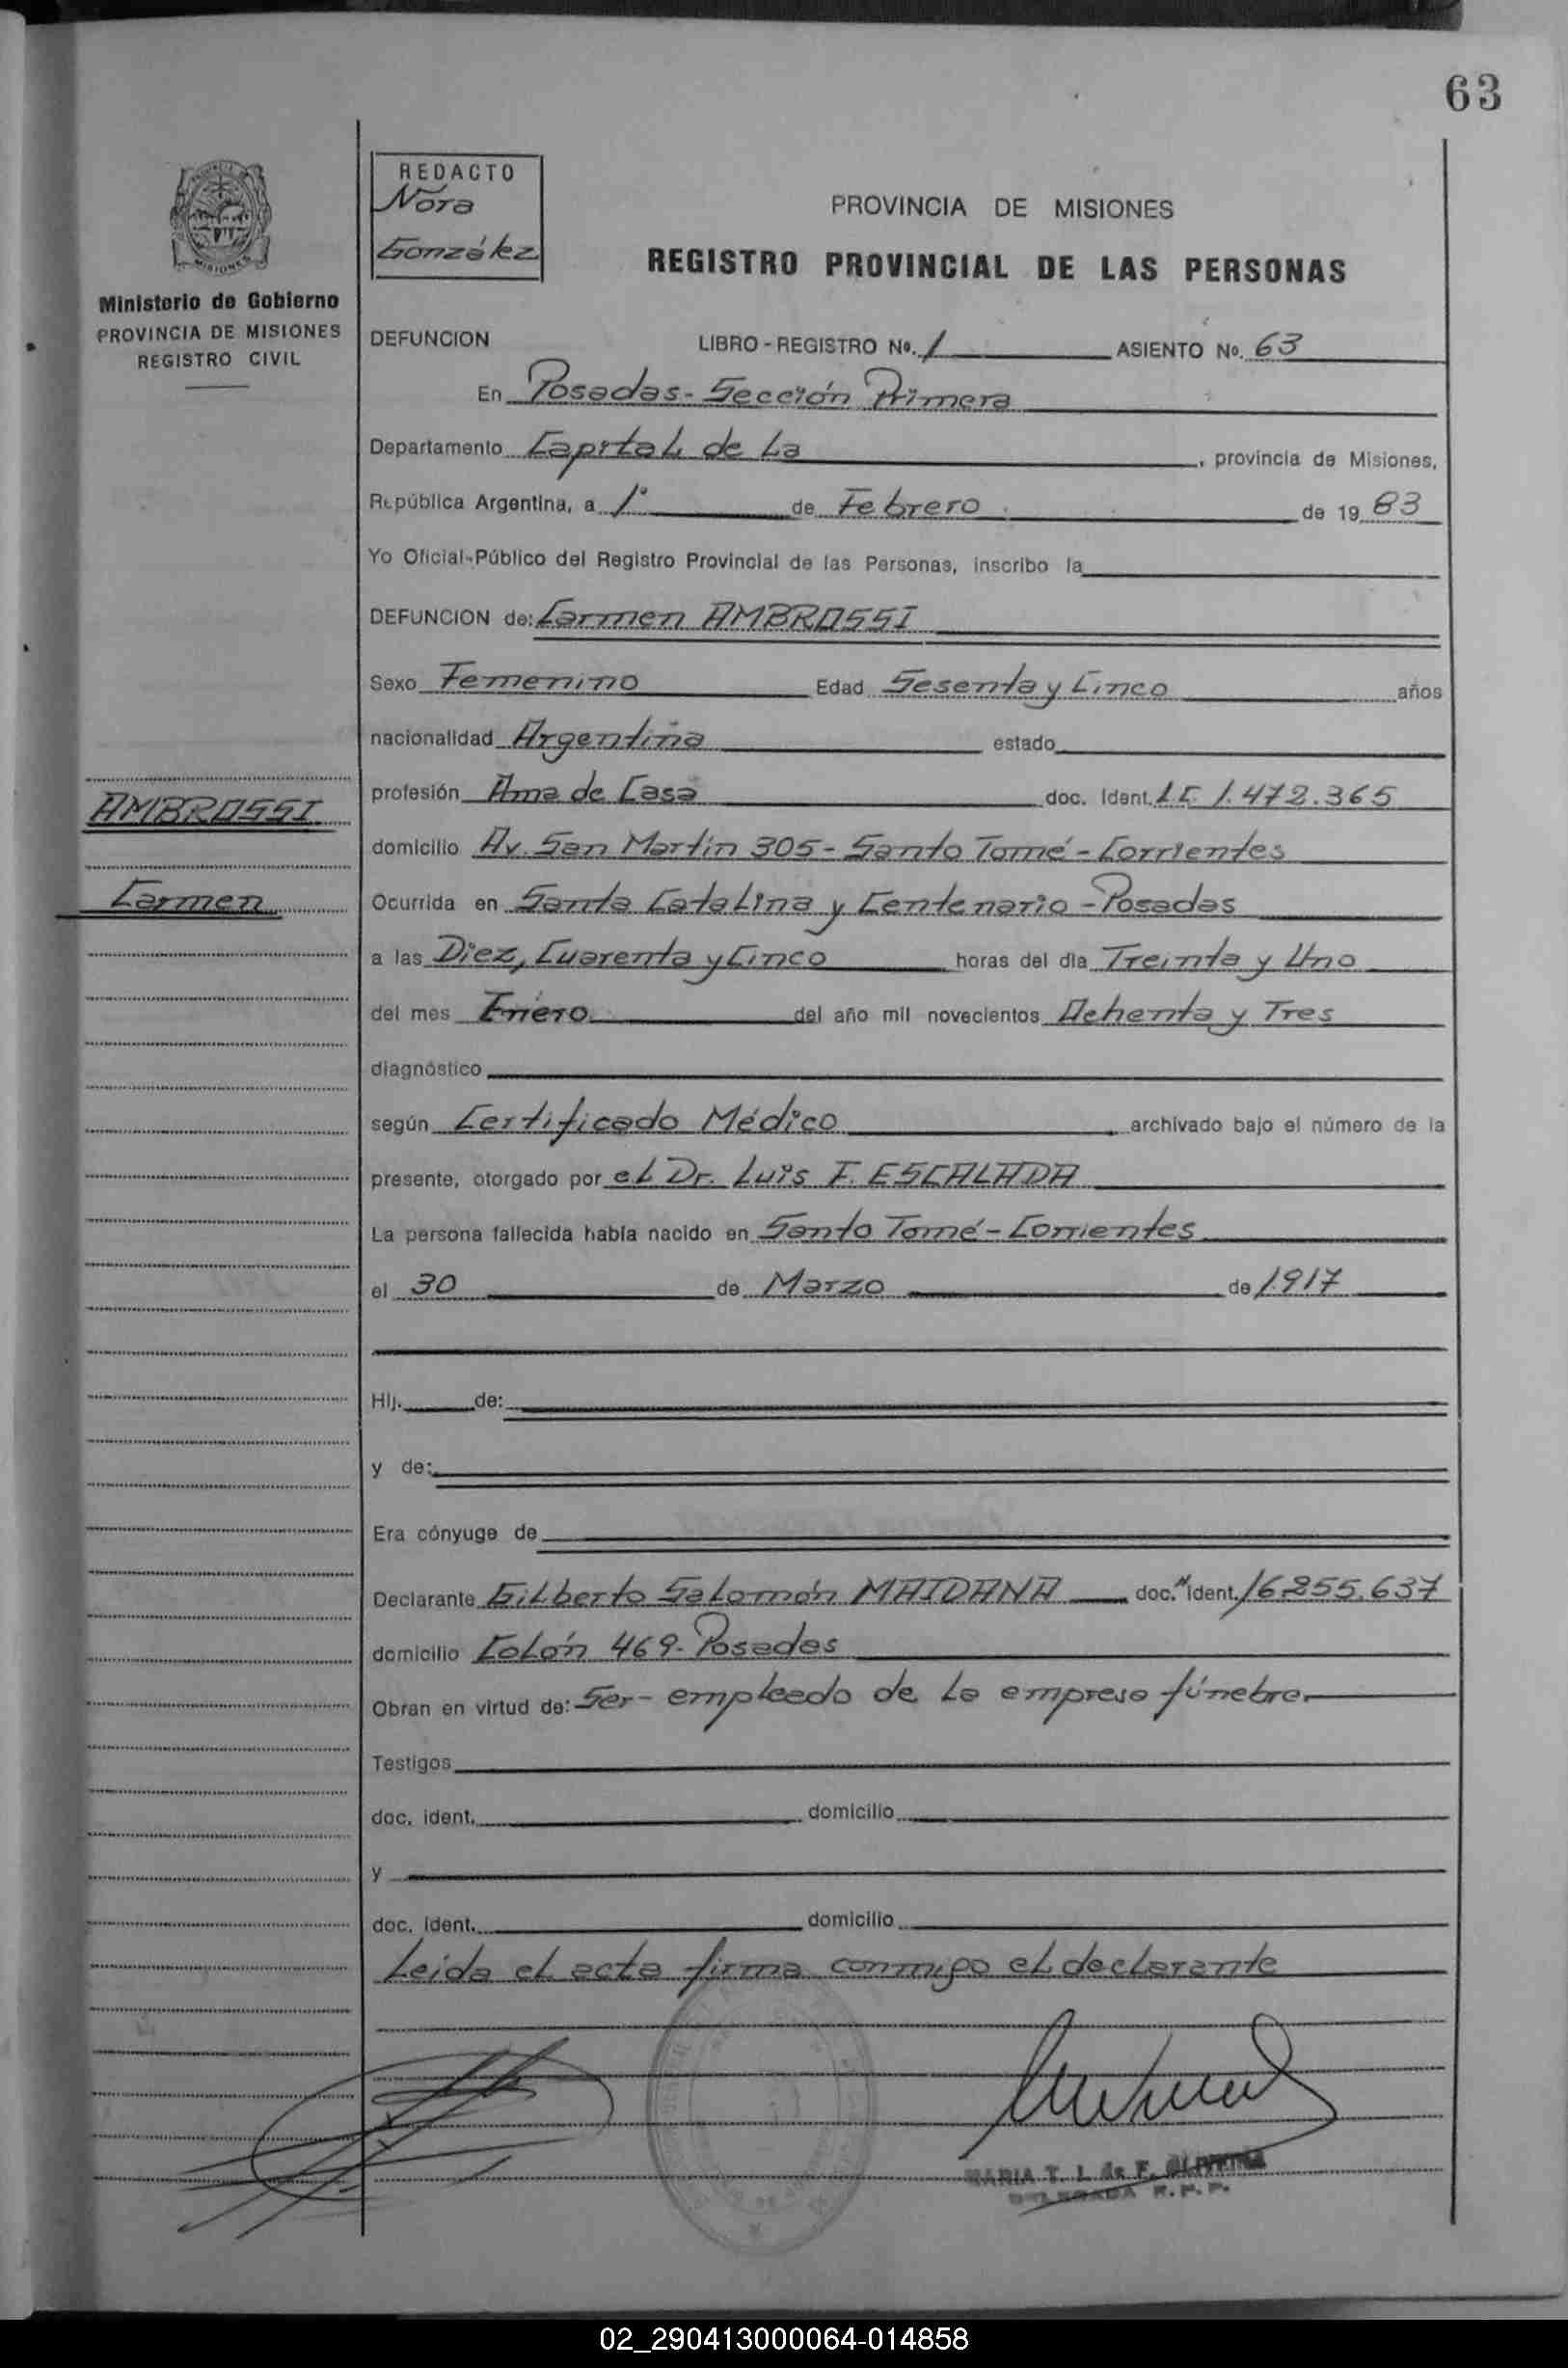 63
REDACTO
Nora
González
PROVINCIA DE MISIONES
REGISTRO PROVINCIAL DE LAS PERSONAS
MISIONES
Ministerio de Gobierno
PROVINCIA DE MISIONES
REGISTRO CIVIL
DEFUNCION LIBRO - REGISTRO Nº. 1 ASIENTO Nº. 63
En Posadas - Sección Primera
Departamento Capital de La , provincia de Misiones,
República Argentina, a 1º de Febrero de 19 83
Yo Oficial-Público del Registro Provincial de las Personas, inscribo la
DEFUNCION de: Carmen AMBROSSI
Sexo Femenino Edad Sesenta y Cinco años
nacionalidad Argentina estado
profesión Ama de Casa doc. Ident. LC. 1.472.365
domicilio Av. San Martín 305 - Santo Tomé - Corrientes
Ocurrida en Santa Catalina y Centenario - Posadas
a las Diez, Cuarenta y Cinco horas del día Treinta y Uno
del mes Enero del año mil novecientos Ochenta y Tres
diagnóstico
según Certificado Médico archivado bajo el número de la
presente, otorgado por el Dr. Luis F. ESCALADA
La persona fallecida había nacido en Santo Tomé - Corrientes
el 30 de Marzo de 1.917
Hij. de:
y de:
Era cónyuge de
Declarante Gilberto Salomón MAIDANA doc. ident. 16.255.637
domicilio Colón 469 - Posadas
Obran en virtud de: Ser - empleado de la empresa fúnebre.
Testigos
doc. ident. domicilio
y
doc. ident. domicilio
Leida el acta firma conmigo el declarante
AMBROSSI
Carmen
MARIA T. I. de F. OLIVEIRA
DELEGADA R. P. P.
02_290413000064-014858